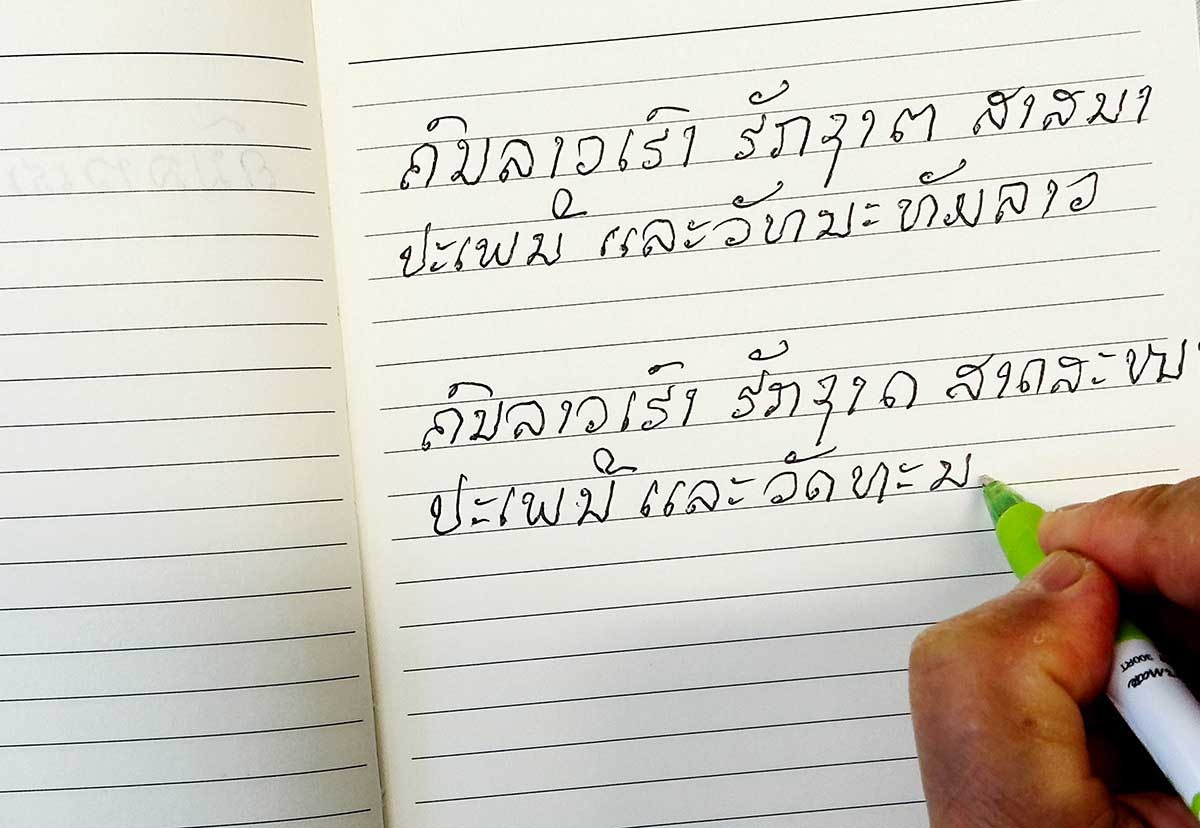 ຄົນລາວເຮົາ ຮັກຊາຕ ສາສນາ
ປະເພນີ ແລະວັທນະທັມລາວ
ຄົນລາວເຮົາ ຮັກຊາດ ສາດສະໜາ
ປະເພນີ ແລະ ວັດທະນ
300RT